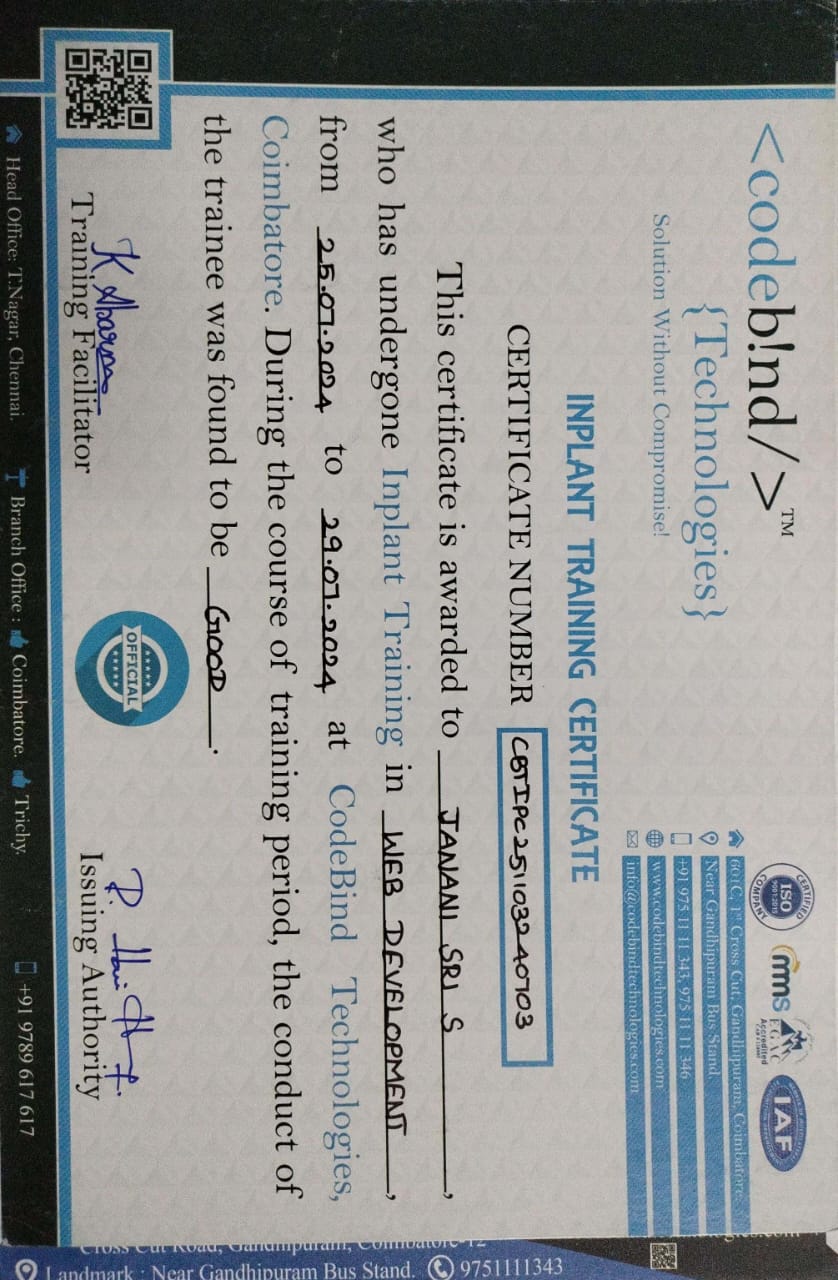 <codeb!nd/>™
{Technologies}
Solution Without Compromise!
CERTIFIED
ISO
9001:2015
COMPANY
mms
EGAC
Accredited
IAF
601C, 1st Cross Cut, Gandhipuram, Coimbatore.
Near Gandhipuram Bus Stand.
+91 975 11 11 343, 975 11 11 346
www.codebindtechnologies.com
info@codebindtechnologies.com
INPLANT TRAINING CERTIFICATE
CERTIFICATE NUMBER CBTIPC251103240703
This certificate is awarded to JANANI SRI S,
who has undergone Inplant Training in WEB DEVELOPMENT,
from 25.07.2024 to 29.07.2024 at CodeBind Technologies,
Coimbatore. During the course of training period, the conduct of
the trainee was found to be GOOD.
K Abarna
OFFICIAL
Training Facilitator
Issuing Authority
Head Office: T.Nagar, Chennai. Branch Office : Coimbatore. Trichy. +91 9789 617 617
Landmark : Near Gandhipuram Bus Stand. 9751111343